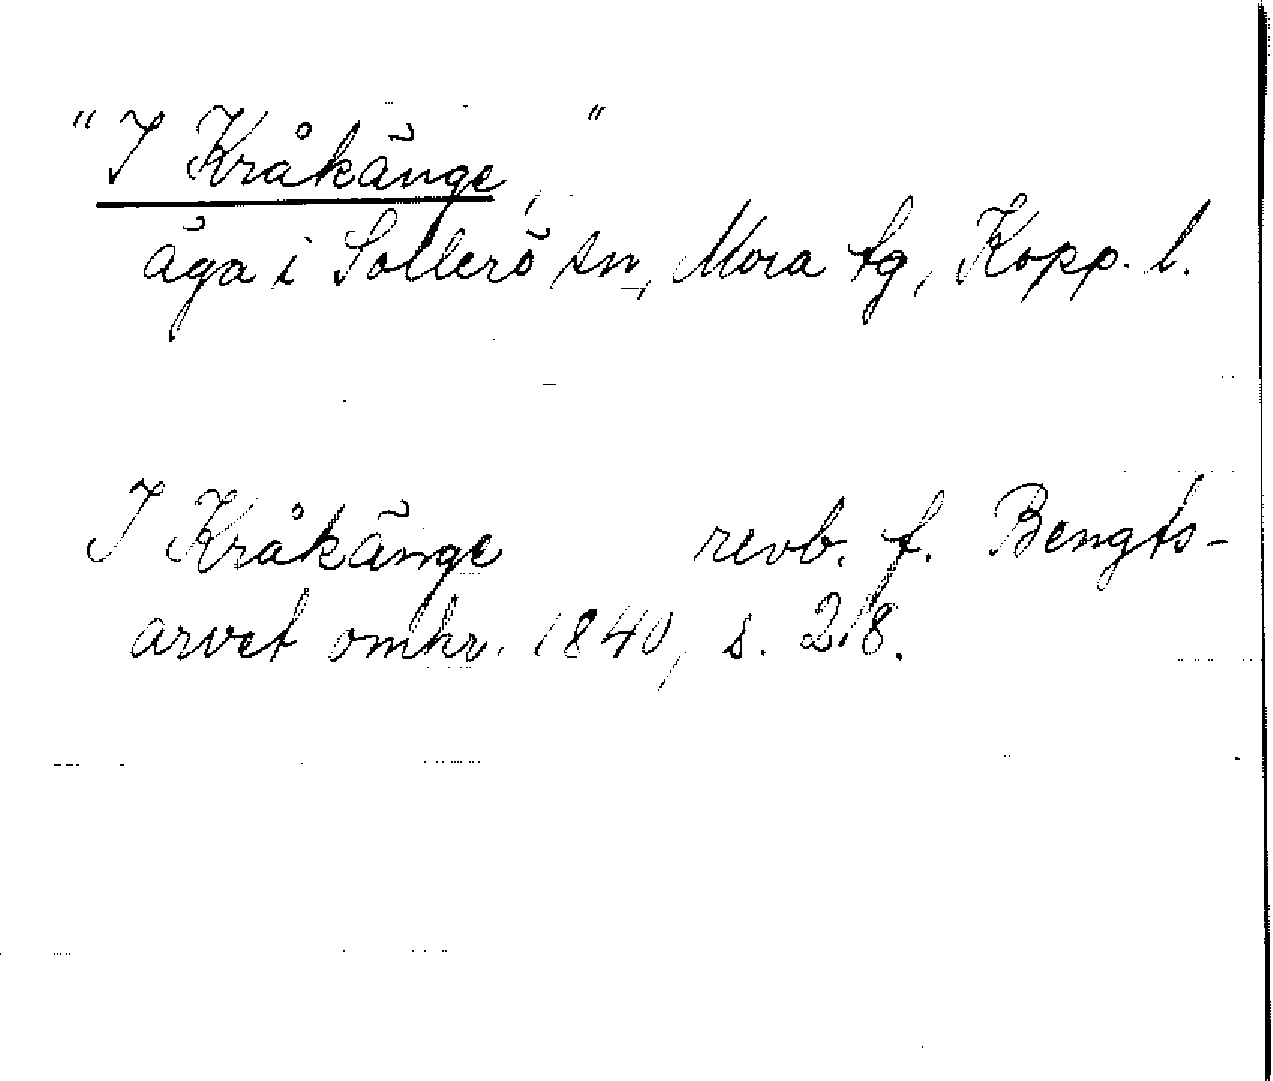 "I Kråkänge, "
äga i Sollerö sn, Mora tg, Kopp. l.
I Kråkänge revb. f. Bengts-
arvet omkr. 1840, s. 218.